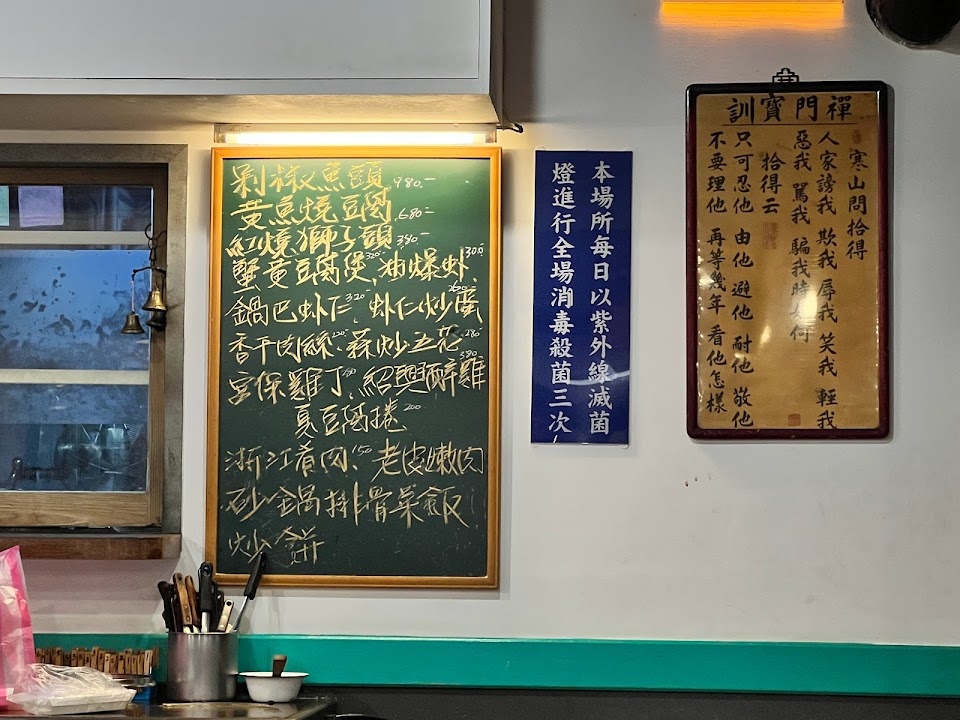 剁椒魚頭980.-
黃魚燒豆腐680.-
紅燒獅子頭380.-
蟹黃豆腐煲320、油爆虾300.-
鍋巴虾仁320、虾仁炒蛋
香干肉絲、蒜炒五花280
宮保雞丁、紹興醉雞380
豆腐捲200
浙江肴肉、150老皮嫩肉
砂鍋排骨菜飯
炒餅
本場所每日以紫外線滅菌
燈進行全場消毒殺菌三次
禪門寶訓
寒山問拾得
人家謗我 欺我 辱我 笑我 輕我
惡我 罵我 騙我時如何
拾得云
只可忍他 由他 避他 耐他 敬他
不要理他 再等幾年 看他怎樣